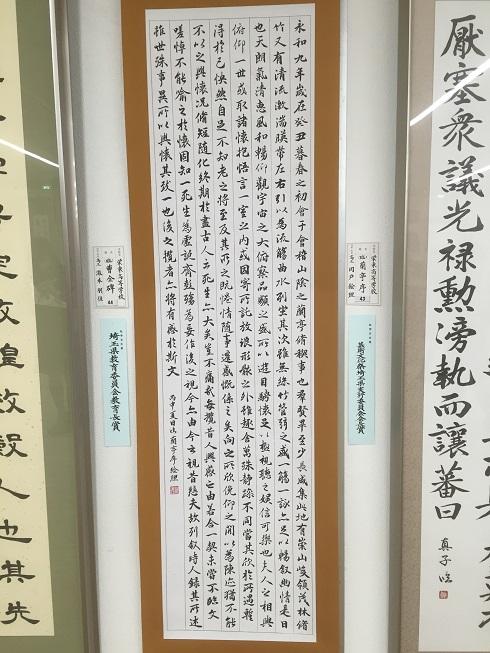 厭塞衆議光禄勲滂執而讓蕃曰
真子臨
栄東高等学校
臨 蘭亭序 43
永和九年歲在癸丑暮春之初會于會稽山陰之蘭亭脩稧事也羣賢畢至少長咸集此地有崇山峻領茂林脩
竹又有清流激湍暎帶左右引以為流觴曲水列坐其次雖無絲竹管弦之盛一觴一詠亦足以暢敘幽情是日
也天朗氣清惠風和暢仰觀宇宙之大俯察品類之盛所以遊目騁懷足以極視聽之娛信可樂也夫人之相與
俯仰一世或取諸懷抱悟言一室之內或因寄所託放浪形骸之外雖趣舍萬殊靜躁不同當其欣於所遇暫
得於己怏然自足不知老之將至及其所之既惓情隨事遷感慨係之矣向之所欣俛仰之閒以為陳迹猶不能
不以之興懷況脩短隨化終期於盡古人云死生亦大矣豈不痛哉每攬昔人興感之由若合一契未嘗不臨文
嗟悼不能喻之於懷固知一死生為虛誕齊彭殤為妄作後之視今亦由今之視昔悲夫故列敘時人錄其所述
雖世殊事異所以興懷其致一也後之攬者亦將有感於斯文 丙申夏日臨蘭亭序絵理
栄東高等学校
臨 曹全碑 44
埼玉県教育委員会教育長賞
人也其先